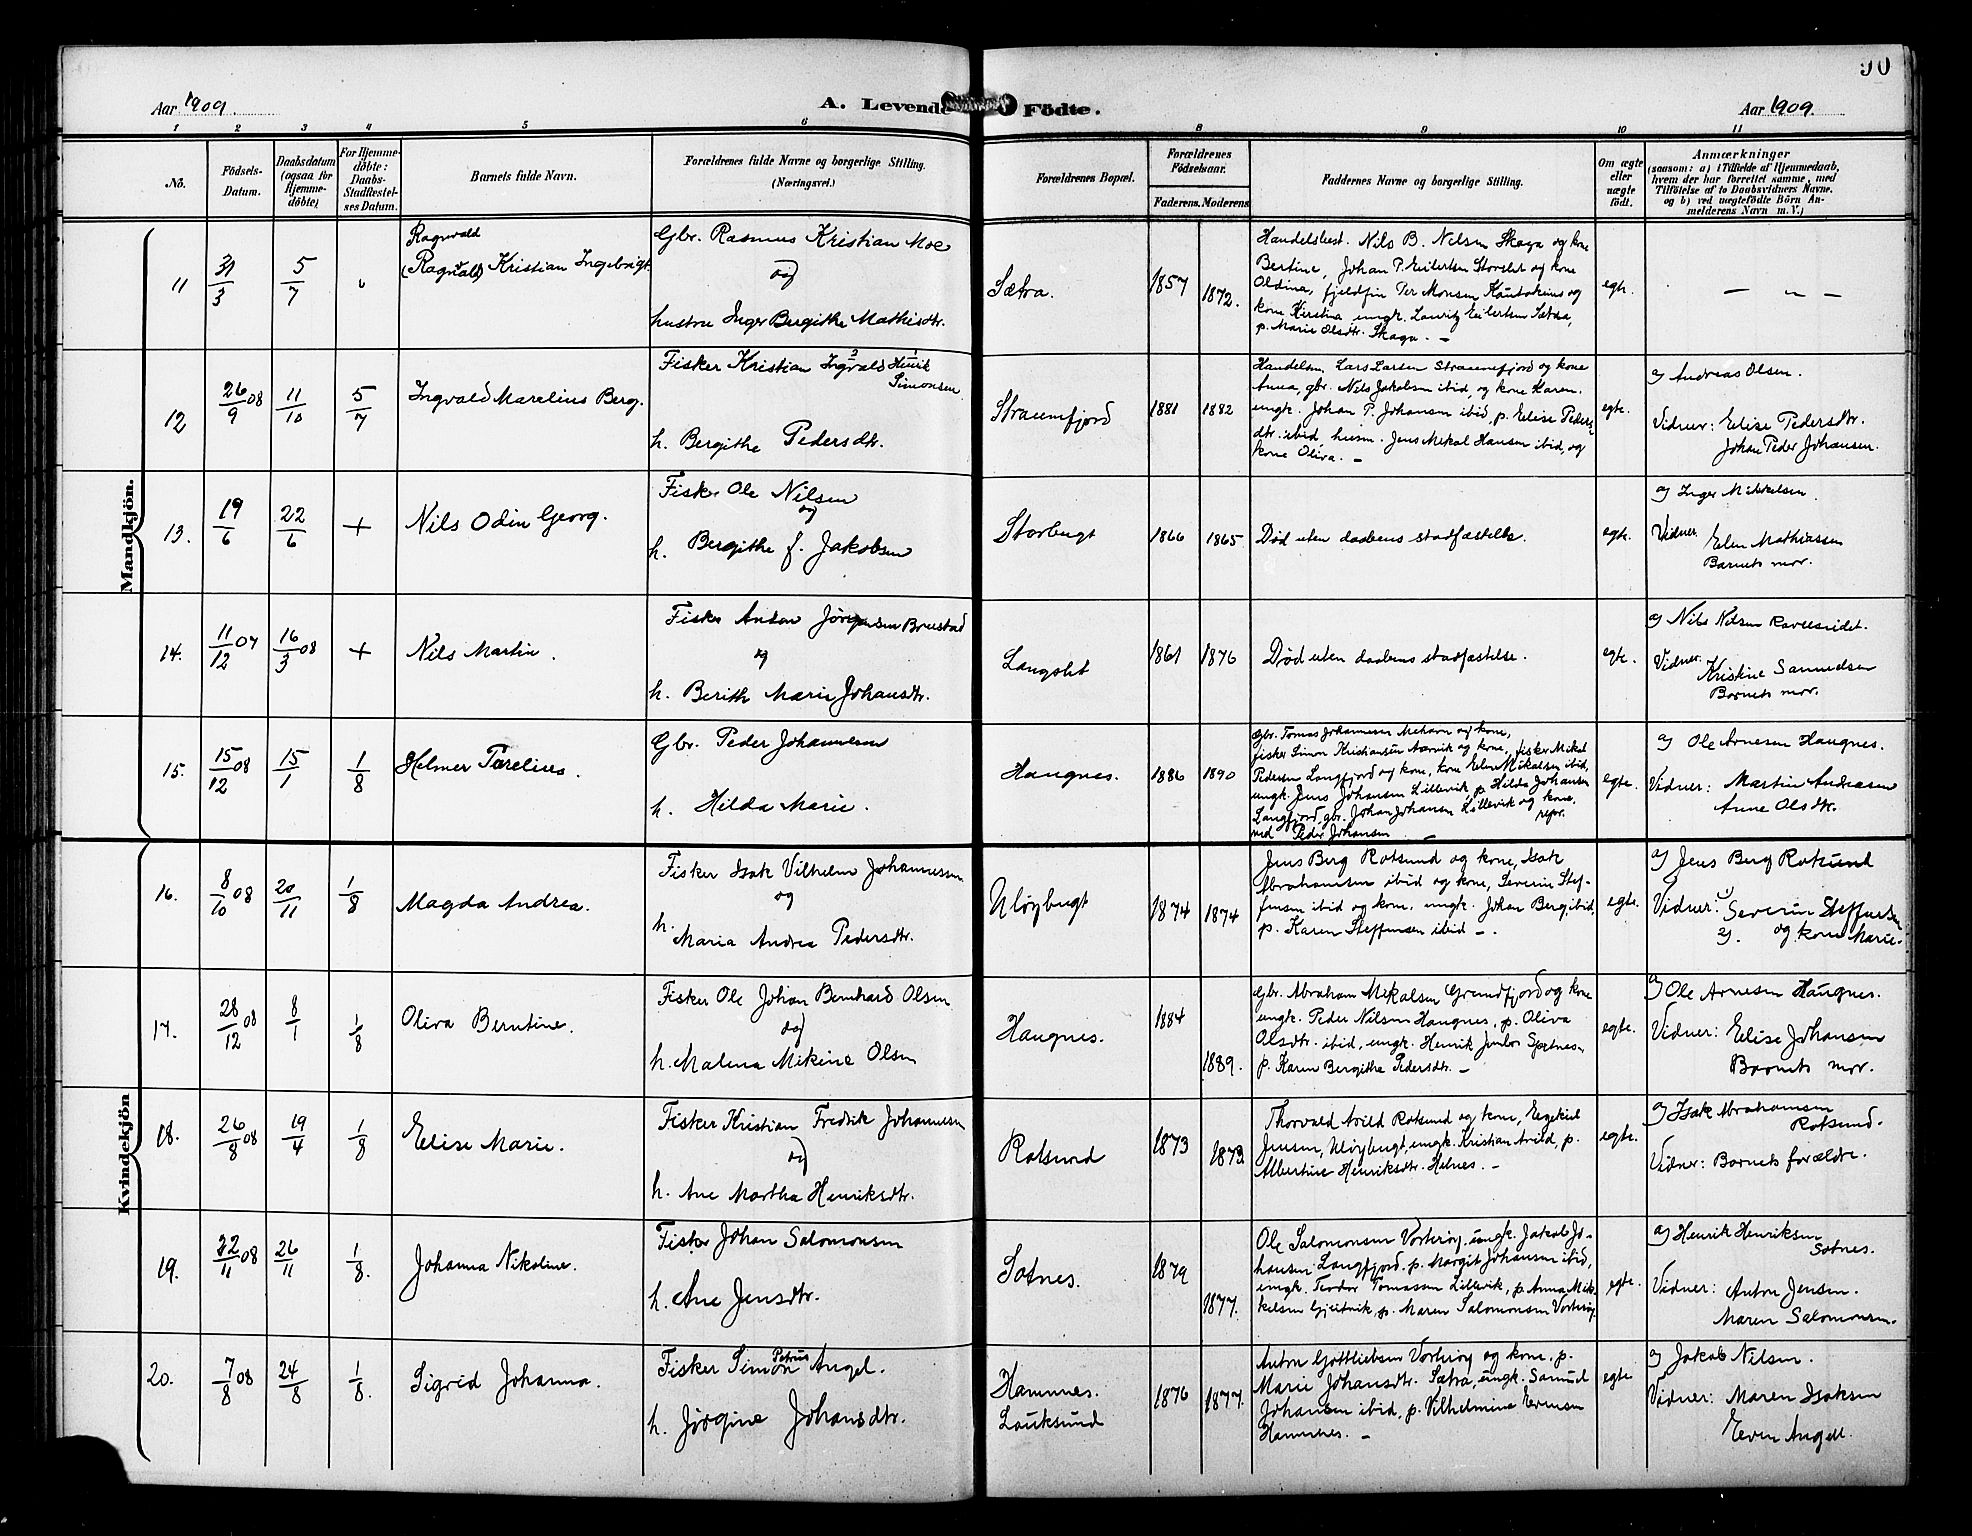 90
Aar 1909.
A. Levende Födte.
Aar 1909.
1 2 3 4 5 6 8 9 10 11
No.
Födsels-
Datum.
Daabsdatum
(ogsaa for
Hjemme-
döbte)
For Hjemme-
döbte:
Daabs-
Stadfæstel-
ses Datum.
Barnets fulde Navn.
Forældrenes fulde Navne og borgerlige Stilling.
(Næringsvei.)
Forældrenes Bopæl.
Forældrenes
Födselsaar.
Faderens. Moderens
Faddernes Navne og borgerlige Stilling.
Om ægte
eller
uægte
födt.
Anmærkninger
(saasom: a) i Tilfælde af Hjemmedaab,
hvem der har forrettet samme, med
Tilföielse af to Daabsvidners Navne.
og b) ved uægtefödte Börn An-
melderens Navn m. V.)
Mandkjön.
11
31/3
5/7
Ragnvald
(Ragnvald) Kristian Ingebrigt
Gbr. Rasmus Kristian Moe
og
hustru Inger Bergithe Mathisdtr.
Sætra.
1857
1872.
Handelsbest. Nils B. Nelsen Skaga og kone
Bertine, Johan P. Eilertsen Storslet og kone
Oldina, fjeldfin Per Monsen Kautokeino og
kone Kirstina ungk. Lauritz Eilertsen Sætra,
p. Marie Olsdtr. Skaga. –
egte.
— „ —
12
26/9 08
11/10
5/7
Ingvald Marelius Berg.
Fisker Kristian Ingvald Henrik
2 1
Simonsen
h. Bergithe Pedersdtr.
Straumfjord
1881
1882
Handelsm. Lars Larsen Straumfjord og kone
Anna, gbr. Nils Jakobsen ibid, og kone Karen.
ungk. Johan P. Johansen ibid, p. Elise Peders-
dtr. ibid, husm. Jens Mekal Hansen ibid, og
kone Oliva. –
egte.
a) Andreas Olsen.
Vidner: Elise Pedersdtr.
Johan Peder Johansen.
13.
19/6
22/6
+
Nils Odin Georg.
Fisker Ole Nilsen
og
h. Bergithe f. Jakobsen
Storbugt
1866
1865
Død uten daabens stadfæstelse.
egte.
a) Inger Mikkelsen.
Vidner:
Elen Mathiassen
Barnets mor.
14.
11/12 07
16/3 08
+
Nils Martin.
Fisker Anton Jørgensen Brustad
og
h. Berith Marie Johansdtr.
Langslet
1861
1876
Død uten daabens stadfæstelse.
egte.
a) Nils Nilsen Raveleidet.
Vidner:
Kristine Samuelsen
Barnets mor.
15.
15/12 08
15/1
1/8
Helmer Torelius.
Gbr. Peder Johannesen
h. Hilda Marie.
Haugnes.
1886
1890
gbr. Tomas Johannesen Mehavn og kone,
fisker Simon Kristiansen Aarvik og kone, fisker Mikal
Pedersen Langfjord og kone, kone Elen Mikalsen ibid,
ungk. Jens Johansen Lillevik, p. Hilda Johansen
Langfjord, gbr. Johan Johansen Lillevik og kone,
repr.
ved Peder Johansen –
egte.
a) Ole Arnesen Haugnes.
Vidner: Martin Andreasen
Anne Olsdtr.
Kvindekjön
16.
8/10 08
20/11
1/8
Magda Andrea.
Fisker Isak Vilhelm Johannessen
og
h.
Maria Andrea Pedersdtr.
Uløybugt
1874
1874
Jens Berg Rotsund og kone, Isak
Abrahamsen ibid og kone, Severin Stef-
fensen ibid og kone, ungk. Johan Berg ibid,
p. Karen Steffensen ibid –.
egte.
a) Jens Berg Rotsund
Vidner: 1)
Severin Steffensen
2). og kone Marie.
17.
28/12 08
8/1
1/8
Oliva Berntine.
Fisker Ole Johan Bernhard Olsen
og
h. Malena Mekine Olsen
Haugnes.
1884
1889.
Gbr. Abraham Mekalsen Grundfjord og kone
ungk. Peder Nilsen Haugnes, p. Oliva
Olsdtr. ibid, ungk. Henrik Junbor Spetnes,
p. Karen Bergithe Pedersdtr. –
egte.
a) Ole Arnesen Haugnes.
Vidner: Elise Johansen
Barnets mor.
18.
26/8 08
19/4
1/8
Elise Marie.
Fisker Kristian Fredrik Johannessen
og
h. Ane Martha Henriksdtr.
Rotsund
1873
1873
Thorvald Arild Rotsund og kone, Ezekiel
Jensen, Uløybugt, ungk. Kristian Arild, p.
Albertine Henriksdtr. Helnes. –
egte.
a) Isak Abrahamsen
Rotsund.
Vidner: Barnets forældre.
19.
22/11 08
26/11
1/8.
Johanna Nikoline.
Fisker Johan Salomonsen
h. Ane Jensdtr.
Sotnes.
1879
1877.
Ole Salomonsen Vorterøy, ungk. Jakob Jo-
hansen Langfjord. p. Margit Johansen ibid,
ungk. Teodor Tomassen Lillevik, p. Anna Mik-
kelsen Gjeitvik, p. Maren Salomonsen Vorterøy
egte.
a) Henrik Henriksen
Sotnes.
Vidner: Anton Jensen.
Maren Salomonsen.
20.
7/8 08
24/8
1/8.
Sigrid Johanna.
Petrus
Fisker Simon Angel.
h. Jørgine Johansdtr.
Hamnes.
Lauksund
1876
1877.
Anton Gottliebsen Vorterøy og kone, p.
Marie Johansdtr. Sætra, ungk. Samuel
Johansen ibid, p. Vilhelmine Evensen
Hamnes. –
egte
a) Jakob Nilsen.
Vidner: Maren Isaksen
Even Angell.